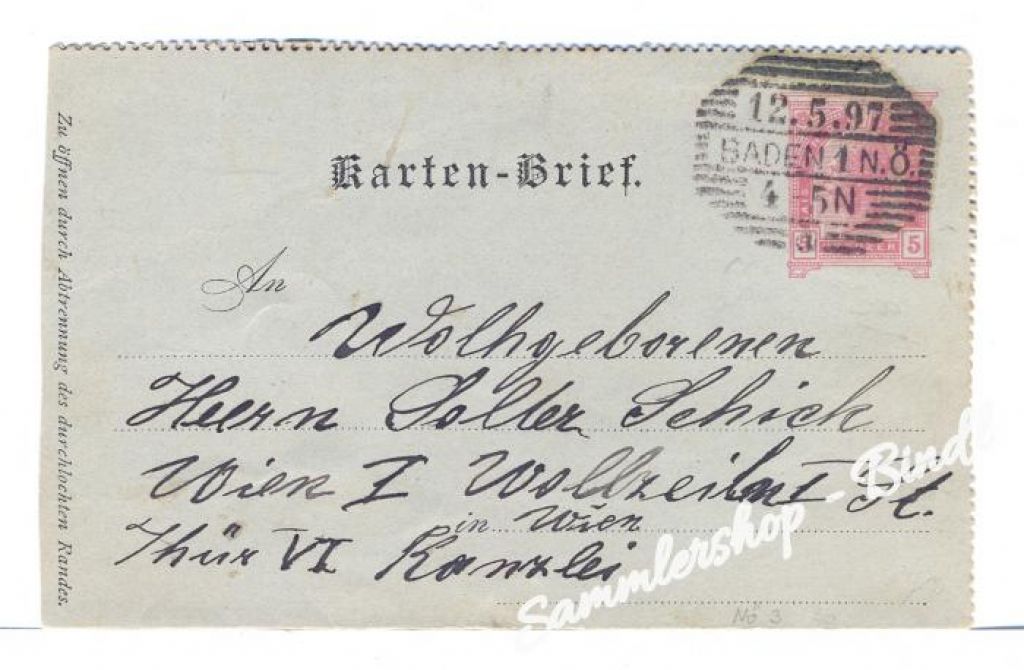 12.5.97
BADEN 1 N.Ö.
4 5N
a
5
Karten-Brief.
An
Wolhgeborenen
Herrn Solter Schick
Wien I Wollzeile I St.
in Wien
Thür VI Kanzlei
Zu öffnen durch Abtrennung des durchlochten Randes.
Sammlershop - Bindl
No 3